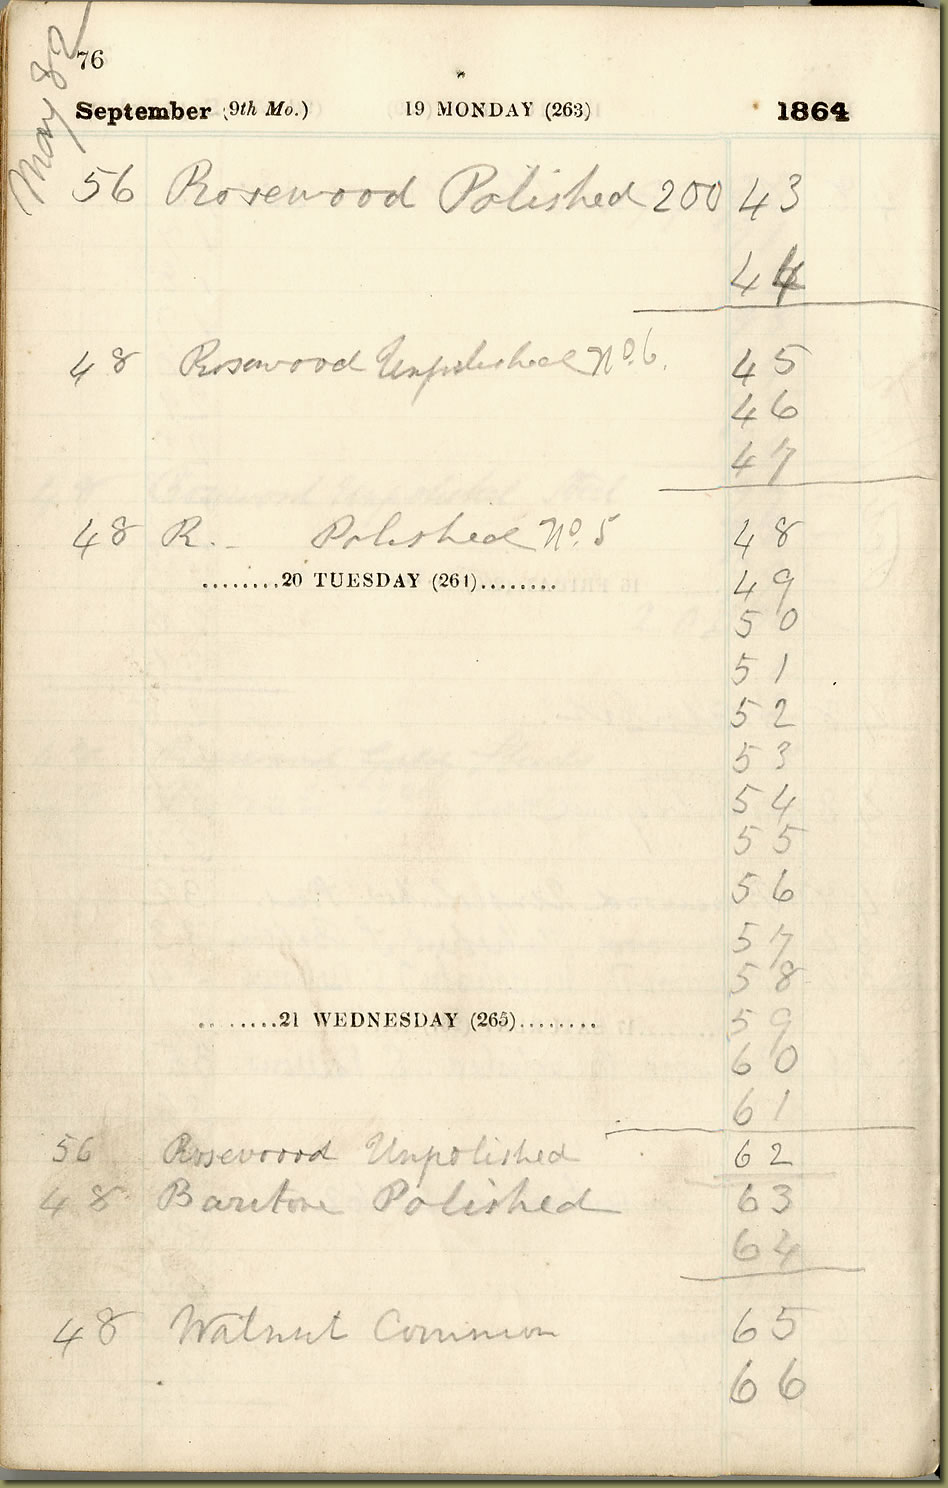 May 82
76
September (9th Mo.) 19 MONDAY (263) 1864
56 Rosewood Polished 200 43
44
48 Rosewood Unpolished No. 6. 45
46
47
48 R. Polished No. 5 48
........20 TUESDAY (264)........ 49
50
51
52
53
54
55
56
57
58
........21 WEDNESDAY (265)........ 59
60
61
56 Rosewood Unpolished 62
48 Baritone Polished 63
64
48 Walnut Common 65
66